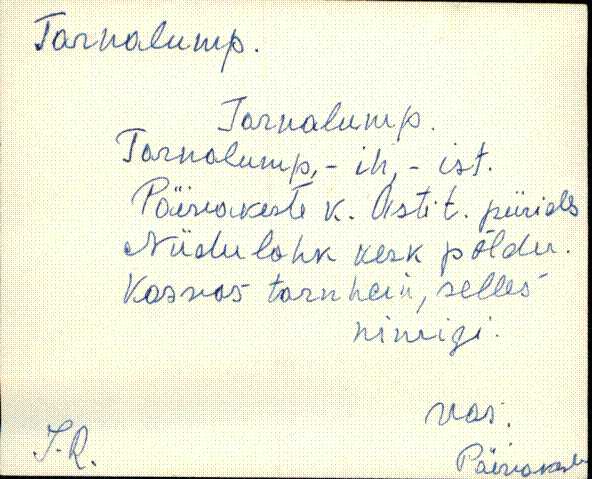 Tarnalump.
Tarnalump.
Tarnalump, - ih, - ist.
Päivakeste k. Astit. piirides
Niidulohk kesk põldu.
Kasvas tarnhein, selles
nimigi.
Vas.
J. R.
Päivakeste